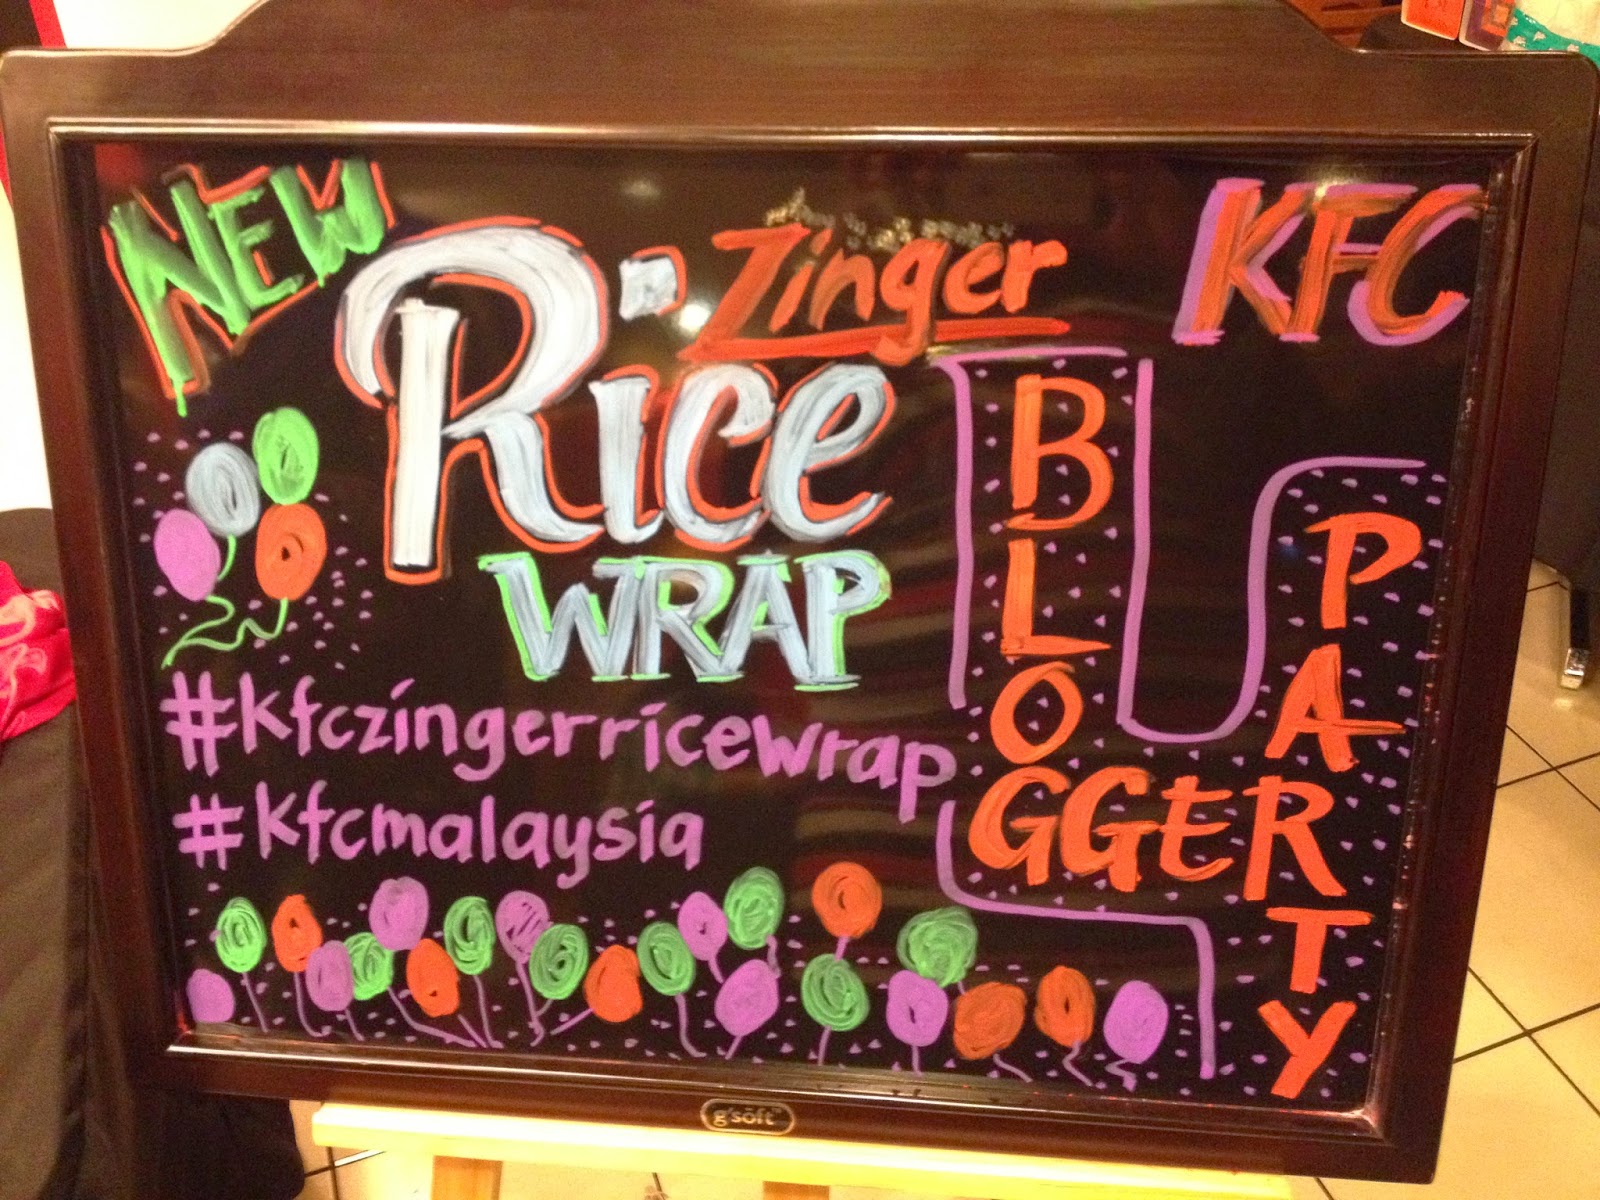 NEW
Zinger
Rice
WRAP
#kfczingerricewrap
#kfcmalaysia
KFC
BLOGGER
PARTY
g'söft